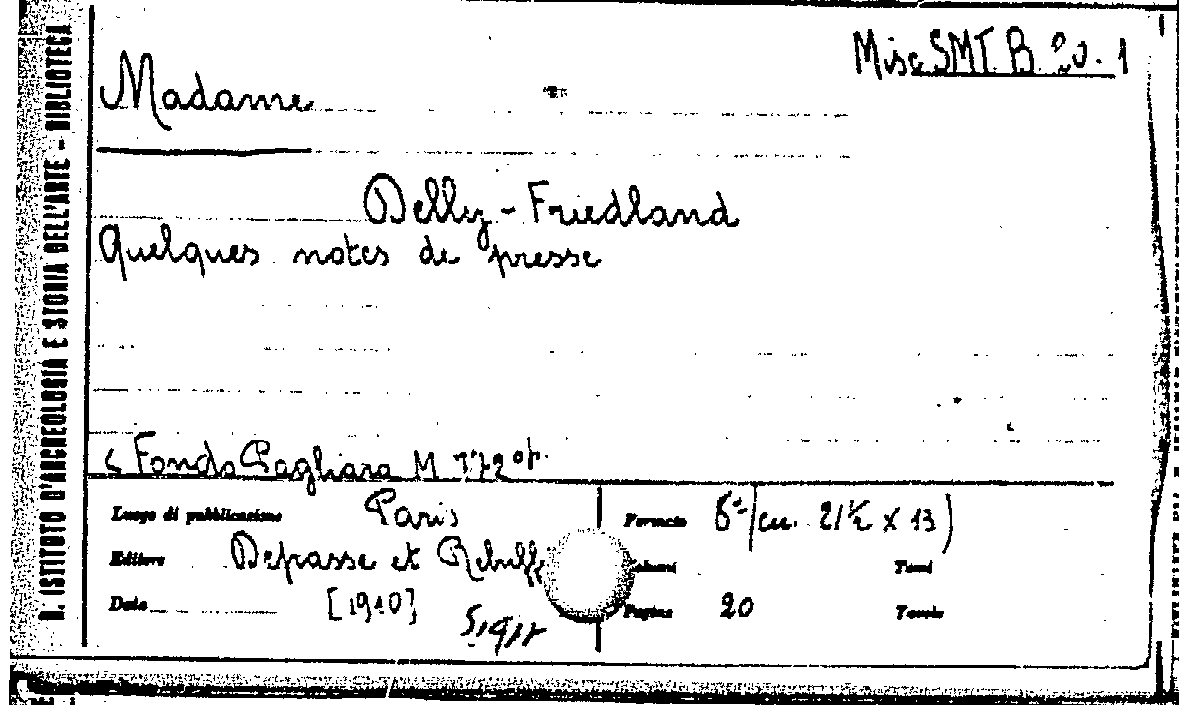 R. ISTITUTO D'ARCHEOLOGIA E STORIA DELL'ARTE - BIBLIOTECA
Misc SMT. B. 20. 1
Madame
Delly-Friedland
Quelques notes de presse
Fondo Pagliara M
Luogo di pubblicazione Paris Formato 8°(cm. 21½ x 13)
Editore Depasse et Volumi Tomi
Data [1910] Pagine 20 Tavole